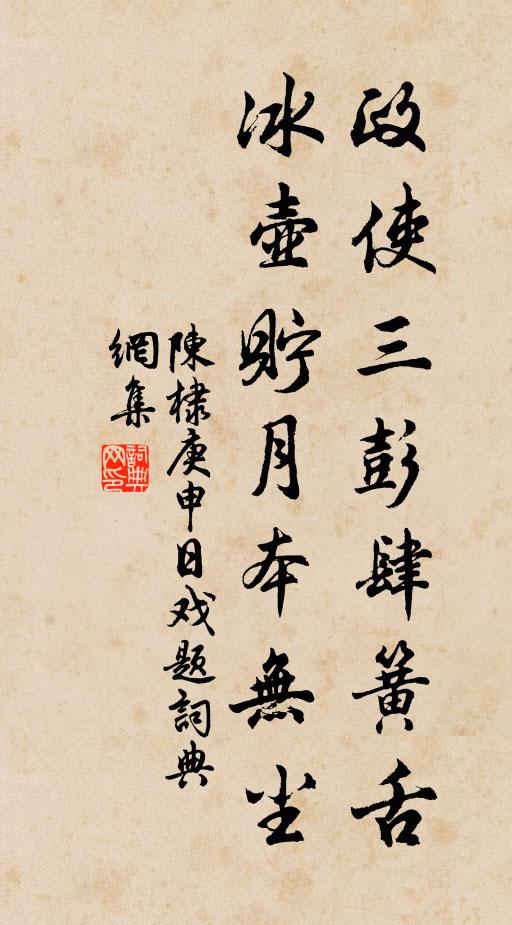 政使三彭肆簧舌
冰壺貯月本無尘
陳棣庚申日戏题詞典
網集
詞典
网印